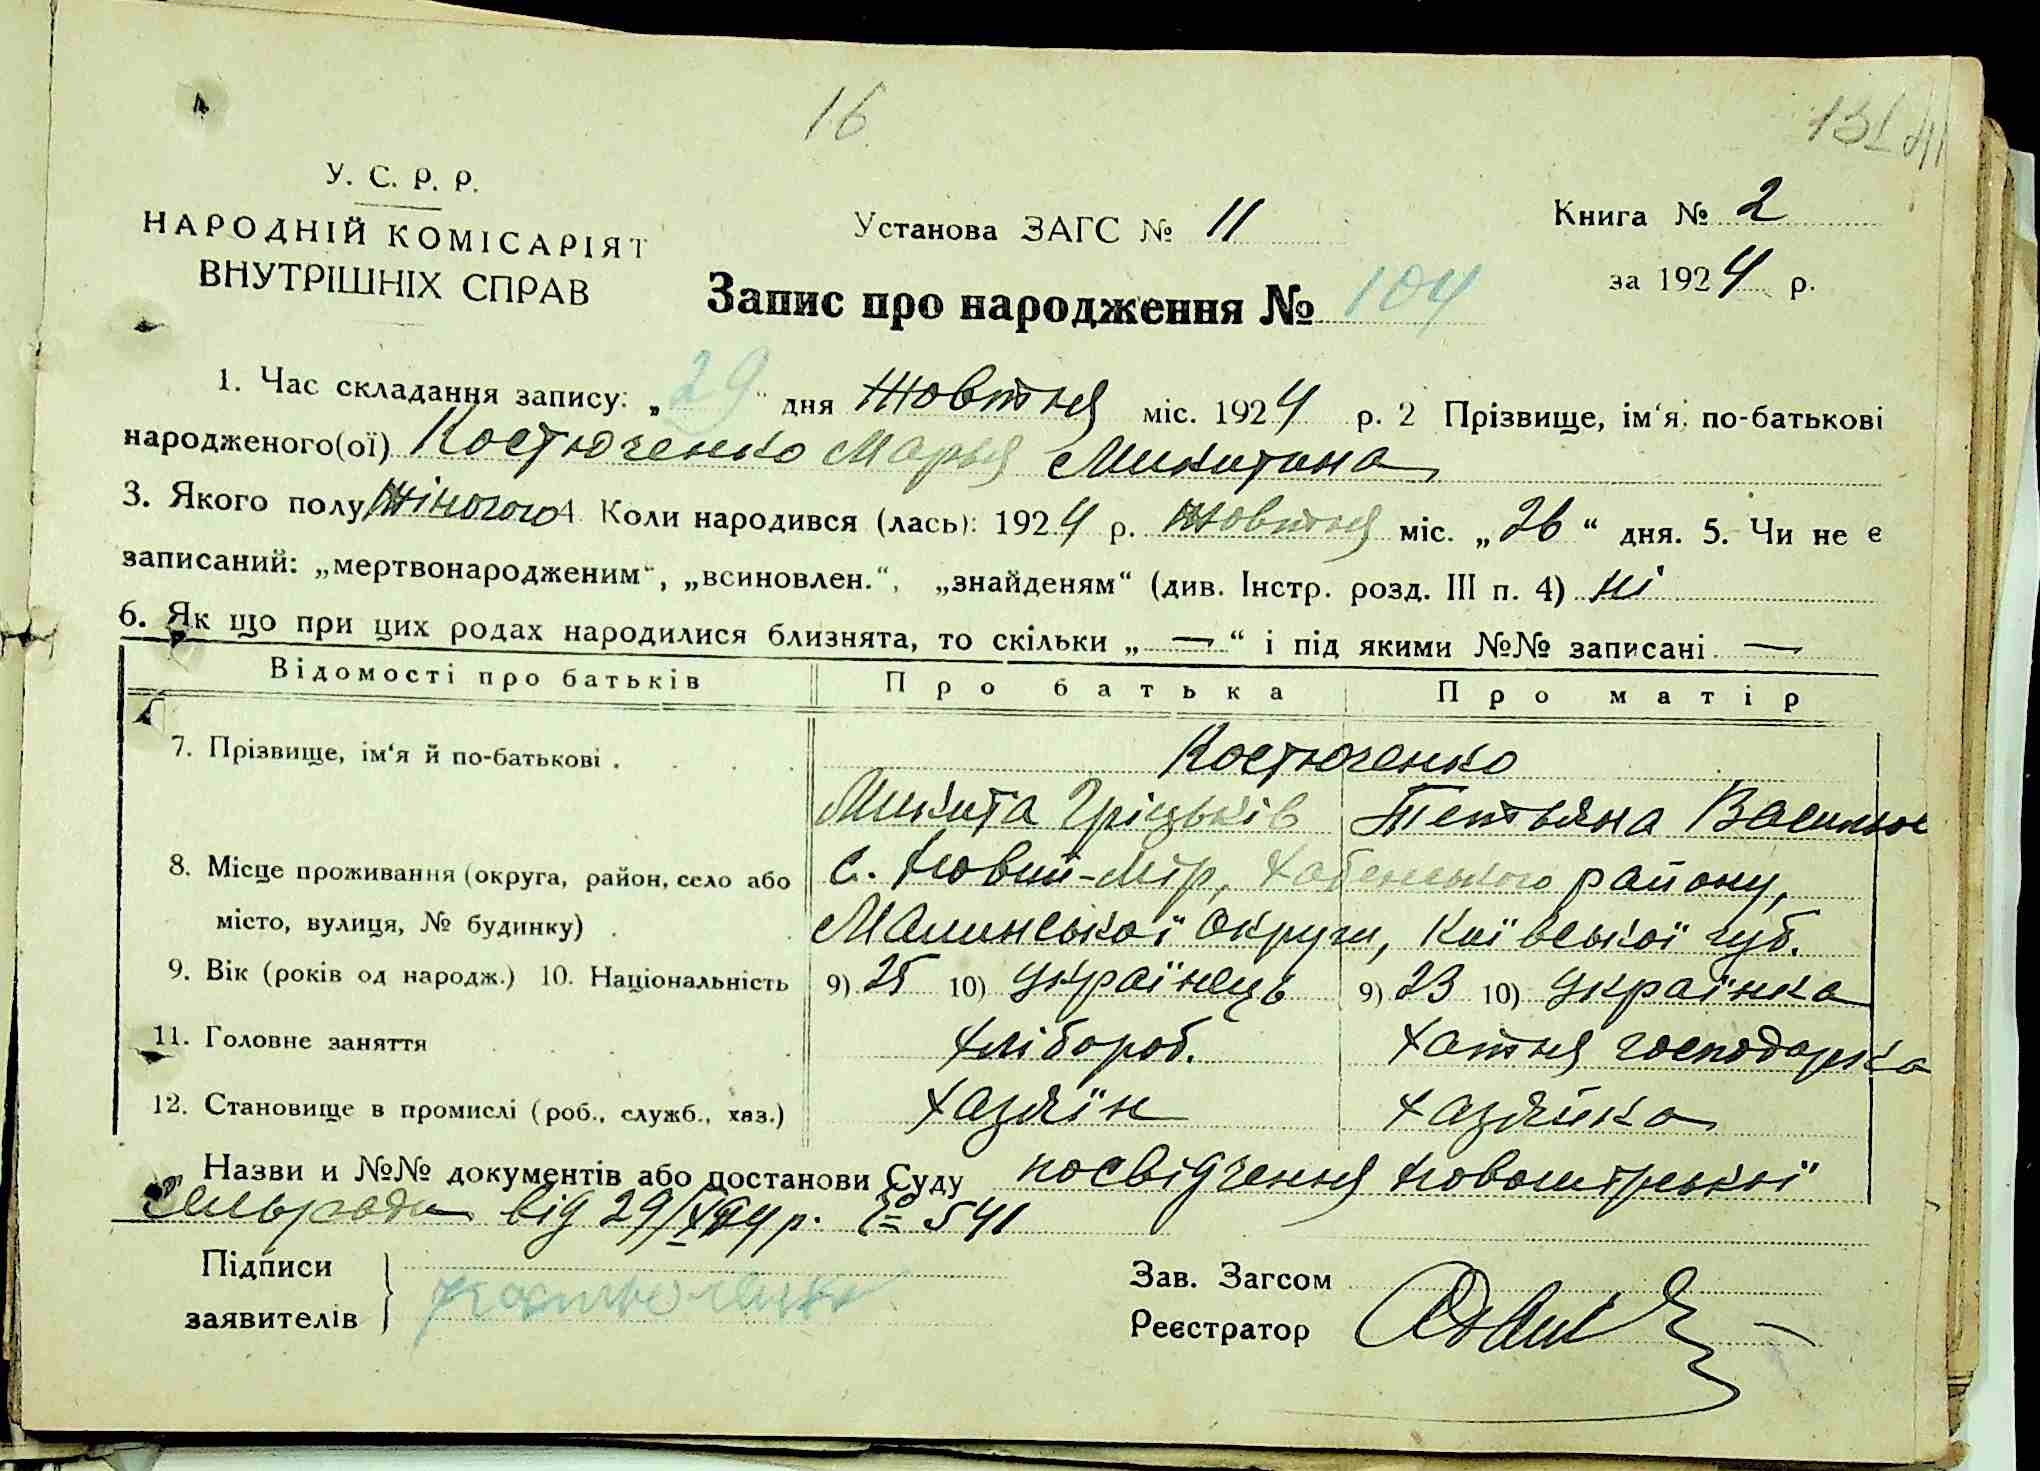 16
У. С. Р. Р.
НАРОДНІЙ КОМІСАРІЯТ
ВНУТРІШНІХ СПРАВ
Установа ЗАГС № 11
Книга № 2
за 1924 р.
Запис про народження № 104
1. Час складання запису: „29“ дня Жовтня міс. 1924 р. 2 Прізвище, ім‘я, по-батькові
народженого(ої) Костюченко Марья Микитина
3. Якого полу Жіночого 4. Коли народився (лась): 1924 р. Жовтня міс. „26“ дня. 5. Чи не є
записаний: „мертвонародженим“, „всиновлен.“, „знайденям“ (див. Інстр. розд. III п. 4) ні
6. Як що при цих родах народилися близнята, то скільки „—“ і під якими №№ записані —
Відомості про батьків Про батька Про матір
7. Прізвище, ім‘я й по-батькові . Костюченко
Микита Гріцьків Тетьяна
8. Місце проживання (округа, район, село або с. Новий-Мір, Хабенського району,
місто, вулиця, № будинку) . Малинської округи, Київської губ.
9. Вік (років од народж.) 10. Національність 9) 25 10) Українець 9) 23 10) Українка
11. Головне заняття хлібороб. хатня господарка
12. Становище в промислі (роб., служб., хаз.) хазяїн хазяйка
Назви и №№ документів або постанови Суду посвідчення Новомірської
сельради від 29/ 541
Підписи
заявителів
Костюченко
Зав. Загсом
Реєстратор